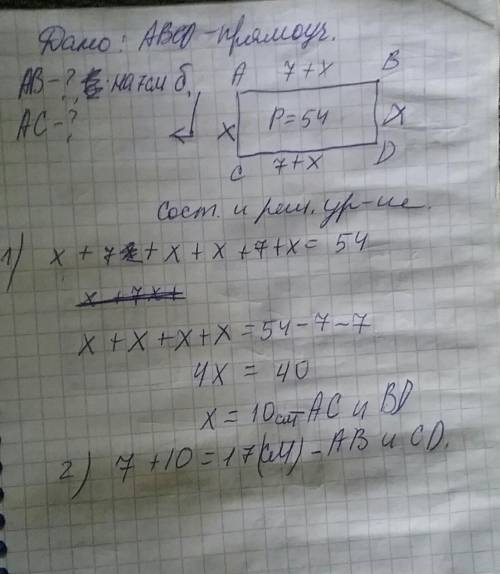 Дано: ABCD - прямоуг.
AB - ?, на 7см б.
AC - ?
A 7+x B
x P=54 x
C 7+x D
Сост. и реш. ур-ие.
1) x + 7 + x + x + 7 + x = 54
x + 7x +
x + x + x + x = 54 - 7 - 7
4x = 40
x = 10 см AC и BD
2) 7 + 10 = 17 (см) - AB и CD.